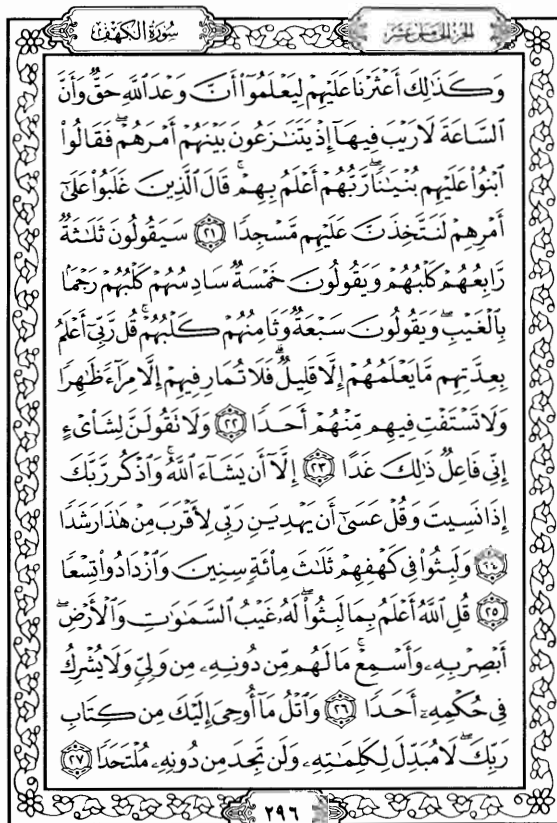 سُورَةُ الكَهْفِ
الجُزْءُ الخَامِسَ عَشَرَ
وَكَذَٰلِكَ أَعْثَرْنَا عَلَيْهِمْ لِيَعْلَمُوٓا۟ أَنَّ وَعْدَ ٱللَّهِ حَقٌّ وَأَنَّ
ٱلسَّاعَةَ لَا رَيْبَ فِيهَآ إِذْ يَتَنَٰزَعُونَ بَيْنَهُمْ أَمْرَهُمْ ۖ فَقَالُوا۟
ٱبْنُوا۟ عَلَيْهِم بُنْيَٰنًا ۖ رَّبُّهُمْ أَعْلَمُ بِهِمْ ۚ قَالَ ٱلَّذِينَ غَلَبُوا۟ عَلَىٰٓ
أَمْرِهِمْ لَنَتَّخِذَنَّ عَلَيْهِم مَّسْجِدًا ٢١ سَيَقُولُونَ ثَلَٰثَةٌ
رَّابِعُهُمْ كَلْبُهُمْ وَيَقُولُونَ خَمْسَةٌ سَادِسُهُمْ كَلْبُهُمْ رَجْمًۢا
بِٱلْغَيْبِ ۖ وَيَقُولُونَ سَبْعَةٌ وَثَامِنُهُمْ كَلْبُهُمْ ۚ قُل رَّبِّىٓ أَعْلَمُ
بِعِدَّتِهِم مَّا يَعْلَمُهُمْ إِلَّا قَلِيلٌ ۗ فَلَا تُمَارِ فِيهِمْ إِلَّا مِرَآءً ظَٰهِرًا
وَلَا تَسْتَفْتِ فِيهِم مِّنْهُمْ أَحَدًا ٢٢ وَلَا تَقُولَنَّ لِشَا۟ىْءٍ
إِنِّى فَاعِلٌ ذَٰلِكَ غَدًا ٢٣ إِلَّآ أَن يَشَآءَ ٱللَّهُ ۚ وَٱذْكُر رَّبَّكَ
إِذَا نَسِيتَ وَقُلْ عَسَىٰٓ أَن يَهْدِيَنِ رَبِّى لِأَقْرَبَ مِنْ هَٰذَا رَشَدًا
٢٤ وَلَبِثُوا۟ فِى كَهْفِهِمْ ثَلَٰثَ مِا۟ئَةٍ سِنِينَ وَٱزْدَادُوا۟ تِسْعًا
٢٥ قُلِ ٱللَّهُ أَعْلَمُ بِمَا لَبِثُوا۟ ۖ لَهُۥ غَيْبُ ٱلسَّمَٰوَٰتِ وَٱلْأَرْضِ ۖ
أَبْصِرْ بِهِۦ وَأَسْمِعْ ۚ مَا لَهُم مِّن دُونِهِۦ مِن وَلِىٍّ وَلَا يُشْرِكُ
فِى حُكْمِهِۦٓ أَحَدًا ٢٦ وَٱتْلُ مَآ أُوحِىَ إِلَيْكَ مِن كِتَابِ
رَبِّكَ ۖ لَا مُبَدِّلَ لِكَلِمَٰتِهِۦ وَلَن تَجِدَ مِن دُونِهِۦ مُلْتَحَدًا ٢٧
٢٩٦